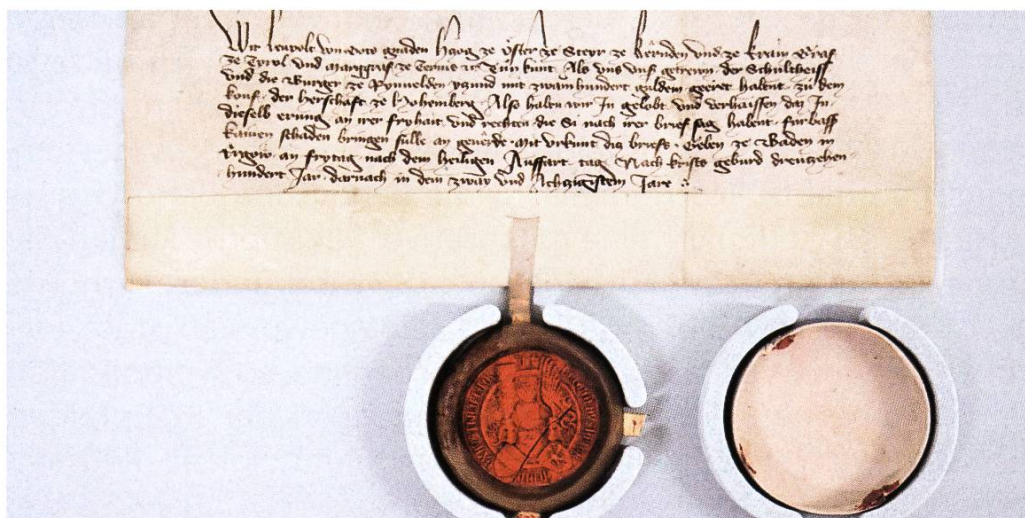 Wir Leupolt von Gots gnaden Hertzog ze Österr ze Steyr ze kernden und ze krain Graf
ze Tyrol und Marggraf ze Tervis etc Tůn kunt Als uns unsr getrewn der Schultheiss
und die Burger ze Rynuelden yzund mit zwainhundert guldein geeret habent zu dem
kouf der herschaft ze Hohemberg Also haben wir In gelobt und verhaissen daz In
dieselb erung an irer fryhait und rechten die Si nach irer brief sag habent fürbass
kainen schaden bringen sülle an geuerde mit urkunt diz briefs Geben ze Baden in
Ergow an frytag nach dem heiligen Auffart tag Nach krists geburd drewtzehen
hundert Jar darnach in dem zway und Achzigistem Jare